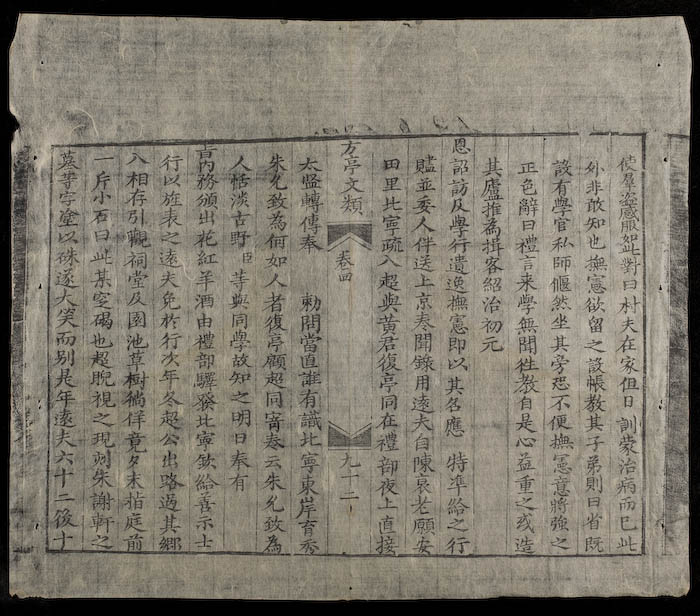 使羣盗感服如此對曰村夫在家但日訓蒙治病而已此
外非敢知也撫憲欲留之設帳教其子弟則曰省既
設有學官私師偃然坐其旁恐不便撫憲意將強之
正色辭曰禮言来學無聞徃教自是心益重之或造
其廬推為揖客紹治初元
恩詔訪及學行遺逸撫憲即以其名應 特準給之行
贐並委人伴送上京奏聞錄用遠夫自陳衰老願安
田里比寧疏入超與黄君復亭同在禮部夜上直接
方亭文類 卷四 九十二
太監轉傳奉 勅問當直誰有識比寧東岸育秀
朱允致為何如人者復亭顧超同寄奏云朱允致為
人恬淡古野臣等與同學故知之明日奉有
旨內務頒出花紅羊酒由禮部驛發比寧欽給善示士
行以旌表之遠夫免於行次年冬超公出路過其鄉
八相存引觀祠堂及園池草樹徜徉竟夕末指庭前
一片小石曰此某窆碣也超睨視之現刻朱謝軒之
墓等字塗以硃遂大笑而别是年遠夫六十二後十